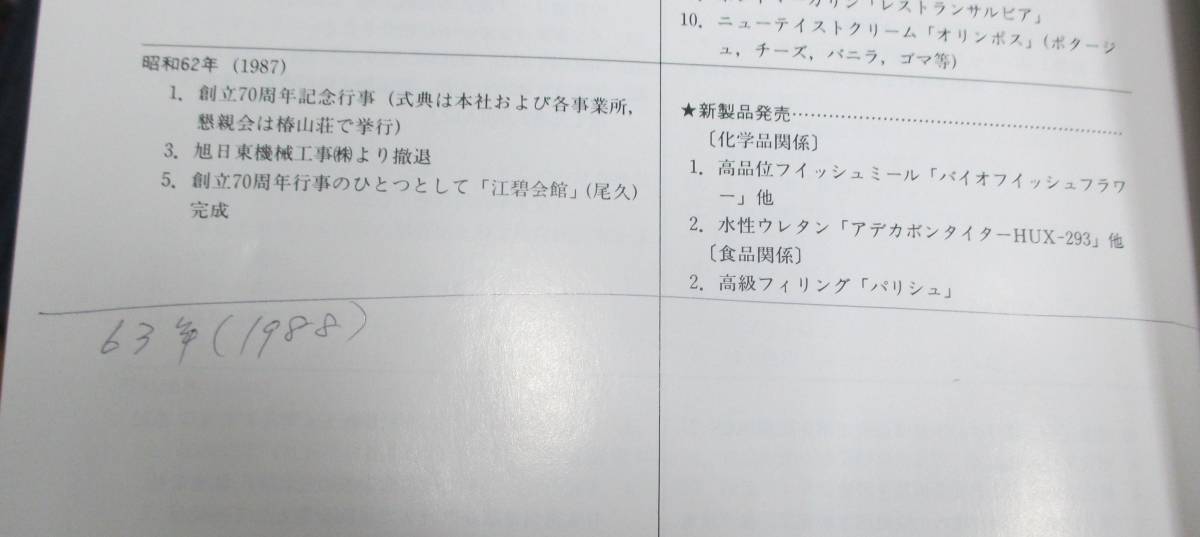 昭和62年 (1987)
1. 創立70周年記念行事 (式典は本社および各事業所,
懇親会は椿山荘で挙行)
3. 旭日東機械工事㈱より撤退
5. 創立70周年行事のひとつとして「江碧会館」(尾久)
完成
63年(1988)
「レストランサルビア」
10. ニューテイストクリーム「オリンポス」(ポタージ
ュ, チーズ, バニラ, ゴマ等)
★新製品発売……………………………………
〔化学品関係〕
1. 高品位フイッシュミール「バイオフイッシュフラワ
ー」他
2. 水性ウレタン「アデカボンタイターHUX-293」他
〔食品関係〕
2. 高級フィリング「パリシュ」